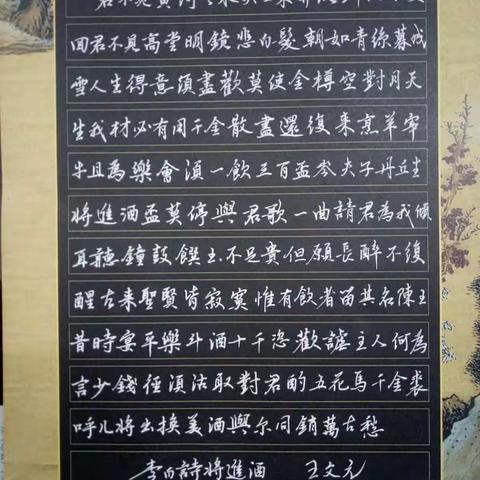 君不見黃河之水天上來奔流到海不復
回君不見高堂明鏡悲白髮朝如青絲暮成
雪人生得意須盡歡莫使金樽空對月天
生我材必有用千金散盡還復來烹羊宰
牛且為樂會須一飲三百盃岑夫子丹丘生
將進酒盃莫停與君歌一曲請君為我傾
耳聽鐘鼓饌玉不足貴但願長醉不復
醒古來聖賢皆寂寞惟有飲者留其名陳王
昔時宴平樂斗酒十千恣歡謔主人何為
言少錢徑須沽取對君酌五花馬千金裘
呼兒將出換美酒與尔同銷萬古愁
李白詩將進酒 王文元